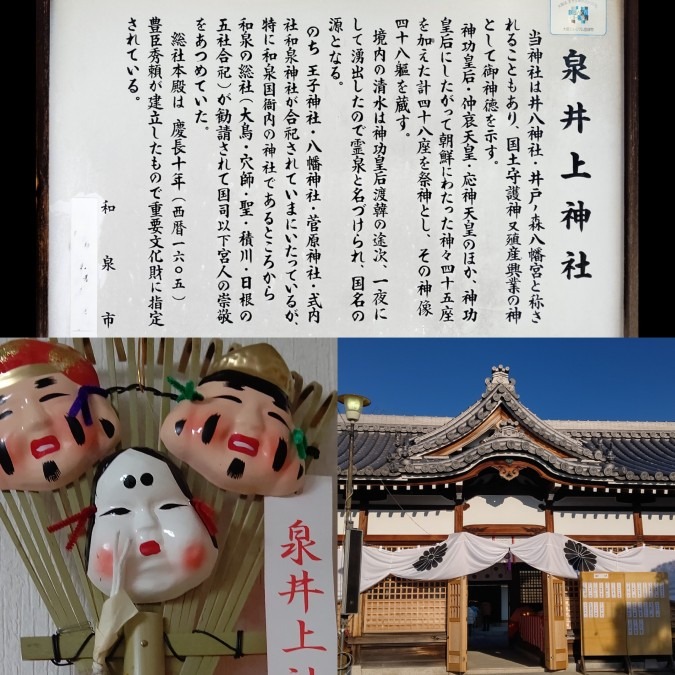 泉井上神社
当神社は井八神社・井戸ノ森八幡宮と称さ
れることもあり、国土守護神又殖産興業の神
として御神徳を示す。
神功皇后・仲哀天皇・応神天皇のほか、神功
皇后にしたがって朝鮮にわたった神々四十五座
を加えた計四十八座を祭神とし、その神像
四十八軀を蔵す。
境内の清水は神功皇后渡韓の途次、一夜に
して湧出したので霊泉と名づけられ、国名の
源となる。
のち王子神社・八幡神社・菅原神社・式内
社和泉神社が合祀されていまにいたっているが、
特に和泉国衙内の神社であるところから
和泉の総社（大鳥・穴師・聖・積川・日根の
五社合祀）が勧請されて国司以下宮人の崇敬
をあつめていた。
総社本殿は慶長十年（西暦一六〇五）
豊臣秀頼が建立したもので重要文化財に指定
されている。
和泉市
泉井上社